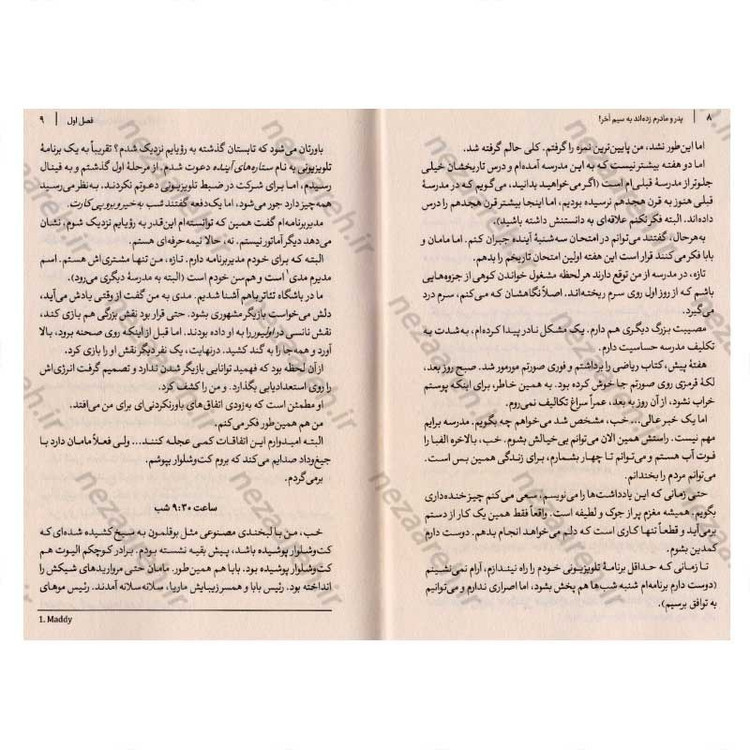 ۸ | پدر و مادرم زده‌اند به سیم آخر!
اما این‌طور نشد، من پایین‌ترین نمره را گرفتم. کلی حالم گرفته شد.
اما دو هفته بیشتر نیست که به این مدرسه آمده‌ام و درس تاریخشان خیلی
جلوتر از مدرسهٔ قبلی‌ام است (اگر می‌خواهید بدانید، می‌گویم که در مدرسهٔ
قبلی هنوز به قرن هجدهم نرسیده بودیم، اما اینجا بیشتر قرن هجدهم را درس
داده‌اند. البته فکر نکنم علاقه‌ای به دانستنش داشته باشید).
به‌هرحال، گفتند می‌توانم در امتحان سه‌شنبهٔ آینده جبران کنم. اما مامان و
بابا فکر می‌کنند قرار است این هفته اولین امتحان تاریخم را بدهم.
تازه، در مدرسه از من توقع دارند هر لحظه مشغول خواندن کوهی از جزوه‌هایی
باشم که از روز اول روی سرم ریخته‌اند. اصلاً نگاهشان که می‌کنم، سرم درد
می‌گیرد.
مصیبت بزرگ دیگری هم دارم. یک مشکل نادر پیدا کرده‌ام، به‌شدت به
تکلیف مدرسه حساسیت دارم.
هفتهٔ پیش، کتاب ریاضی را برداشتم و فوری صورتم مورمور شد. صبح روز بعد،
لکهٔ قرمزی روی صورتم جا خوش کرده بود. به همین خاطر، برای اینکه پوستم
خراب نشود، از آن روز به بعد، عمراً سراغ تکالیف نمی‌روم.
اما یک خبر عالی... خب، مشخص شد می‌خواهم چه بگویم. مدرسه برایم
مهم نیست. راستش همین الان می‌توانم بی‌خیالش بشوم. خب، بالاخره الفبا را
فوت آب هستم و می‌توانم تا چهار بشمارم، برای زندگی همین بس است.
می‌توانم مردم را بخندانم.
حتی زمانی که این یادداشت‌ها را می‌نویسم، سعی می‌کنم چیز خنده‌داری
بگویم. همیشه مغزم پر از جوک و لطیفه است. واقعاً فقط همین یک کار از دستم
برمی‌آید و قطعاً تنها کاری است که دلم می‌خواهد انجام بدهم. دوست دارم
کمدین بشوم.
تا زمانی که حداقل برنامهٔ تلویزیونی خودم را راه نیندازم، آرام نمی‌نشینم
(دوست دارم برنامه‌ام شنبه شب‌ها هم پخش بشود، اما اصراری ندارم و می‌توانیم
به توافق برسیم).
فصل اول | ۹
باورتان می‌شود که تابستان گذشته به رؤیایم نزدیک شدم؟ تقریباً به یک برنامهٔ
تلویزیونی به نام ستاره‌های آینده دعوت شدم. از مرحلهٔ اول گذشتم و به فینال
رسیدم، اما برای شرکت در ضبط تلویزیونی دعوتم نکردند. به‌نظر می‌رسید
همه چیز دارد جور می‌شود، اما یک‌دفعه گفتند شب به‌خیر و یویی کارت.
مدیربرنامه‌ام گفت همین که توانسته‌ام این‌قدر به رؤیایم نزدیک شوم، نشان
می‌دهد دیگر آماتور نیستم. نه، حالا نیمه‌حرفه‌ای هستم.
البته که برای خودم مدیربرنامه دارم. تازه، من تنها مشتری‌اش هستم. اسم
مدیرم مدی۱ است و هم‌سن خودم است (البته به مدرسهٔ دیگری می‌رود).
ما در باشگاه تئاتر باهم آشنا شدیم. مدی به من گفت از وقتی یادش می‌آید،
دلش می‌خواست بازیگر مشهوری بشود. حتی قرار بود نقش بزرگی هم بازی کند،
نقش نانسی در اولیور را به او داده بودند. اما قبل از اینکه روی صحنه برود، بالا
آورد و همه‌جا را به گند کشید. درنهایت، یک نفر دیگر نقش او را بازی کرد.
از آن لحظه به بعد بود که فهمید توانایی بازیگر شدن ندارد و تصمیم گرفت انرژی‌اش
را روی استعدادیابی بگذارد. و من را کشف کرد.
او مطمئن است که به‌زودی اتفاق‌های باورنکردنی‌ای برای من می‌افتد.
من هم همین‌طور فکر می‌کنم.
البته امیدوارم این اتفاقات کمی عجله کنند... ولی فعلاً مامان دارد با
جیغ‌وداد صدایم می‌کند که بروم کت‌وشلوار بپوشم.
برمی‌گردم.
ساعت ۹:۳۰ شب
خب، من با لبخندی مصنوعی مثل بوقلمون به سیخ کشیده شده‌ای که
کت‌وشلوار پوشیده باشد، پیش بقیه نشسته بودم. برادر کوچکم الیوت هم
کت‌وشلوار پوشیده بود. بابا هم همین‌طور. مامان حتی مرواریدهای شیکش را
انداخته بود. رئیس بابا و همسر زیبایش ماریا، سلانه‌سلانه آمدند. رئیس موهای
1. Maddy
nezaareh.ir